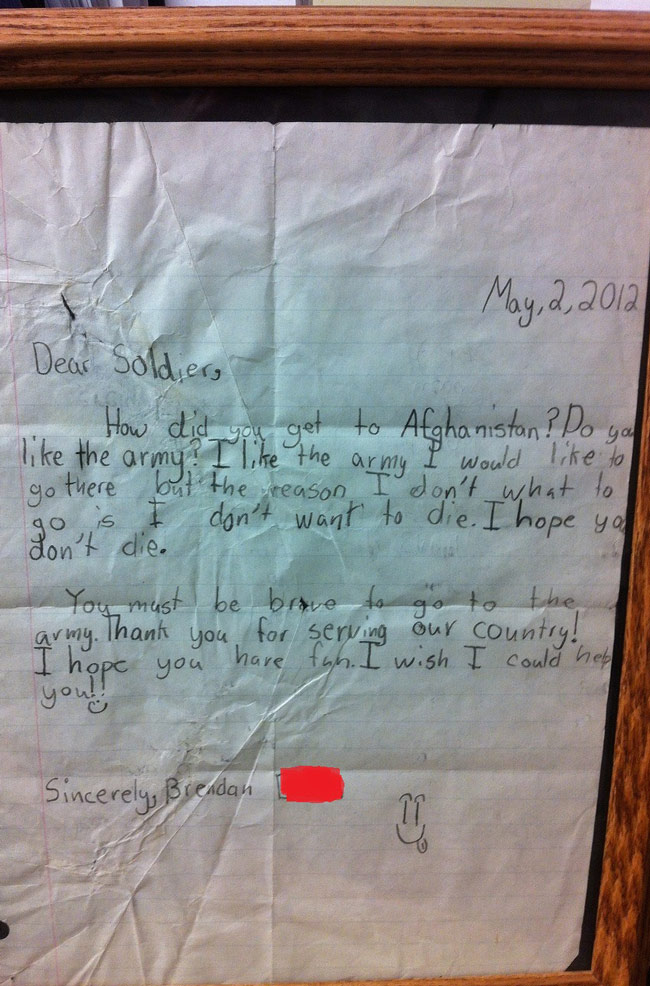 May, 2, 2012
Dear Soldier,
How did you get to Afghanistan? Do you
like the army? I like the army I would like to
go there but the reason I don't what to
go is I don't want to die. I hope yo
don't die.
You must be brave to go to the
army. Thank you for serving our country!
I hope you have fun. I wish I could help
you!!
Sincerely, Brendan